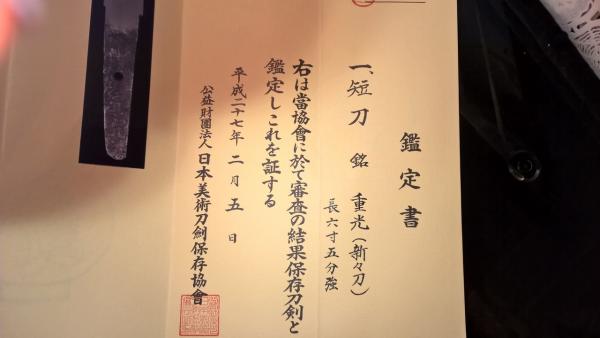 鑑定書
一、短刀 銘 重光(新々刀)
長六寸五分強
右は當協會に於て審査の結果保存刀剣と
鑑定しこれを証する
平成二十七年二月五日
公益財團法人 日本美術刀劍保存協會